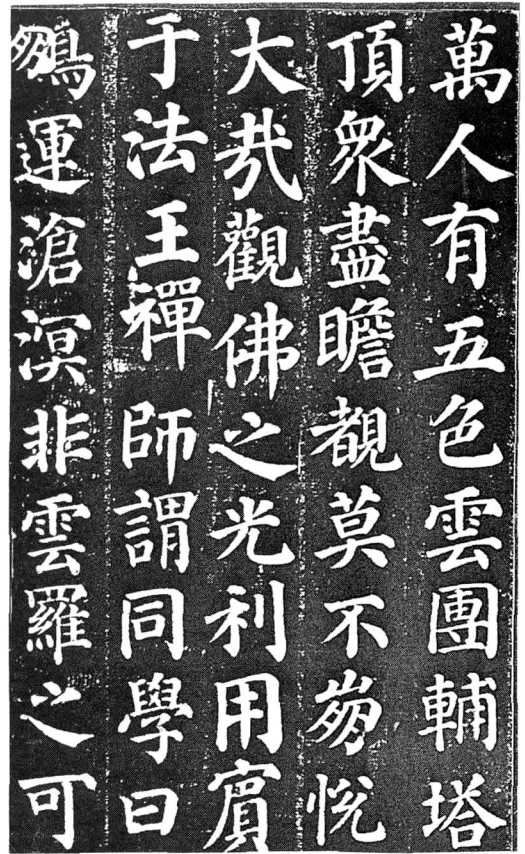 萬人有五色雲團輔塔
頂衆盡瞻覩莫不崩悅
大哉觀佛之光利用賓
于法王禪師謂同學曰
鵬運滄溟非雲羅之可